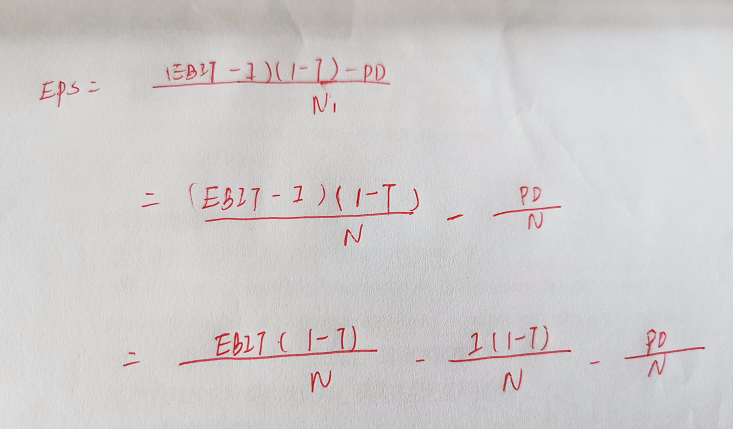 EPS = (EBIT - I)(1-T) - PD / N₁
= (EBIT - I)(1-T) / N - PD / N
= EBIT(1-T) / N - I(1-T) / N - PD / N